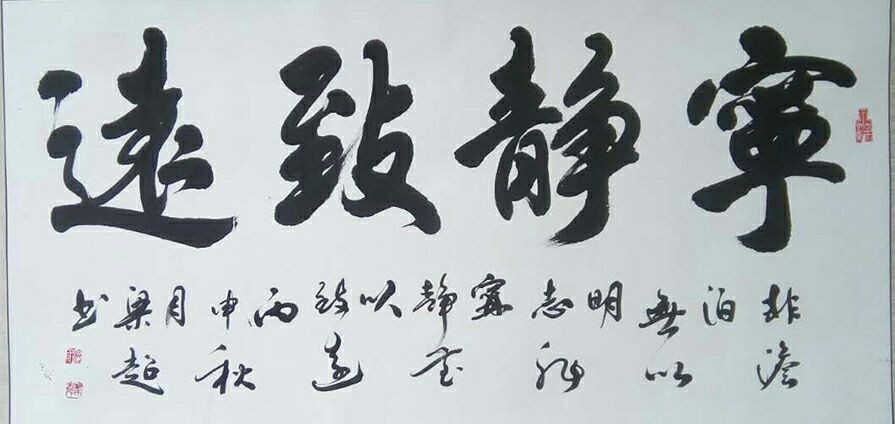 寧静致遠
非澹
泊
無以
明
志非
寧
静无
以
致遠
丙
申秋
月
梁超
书